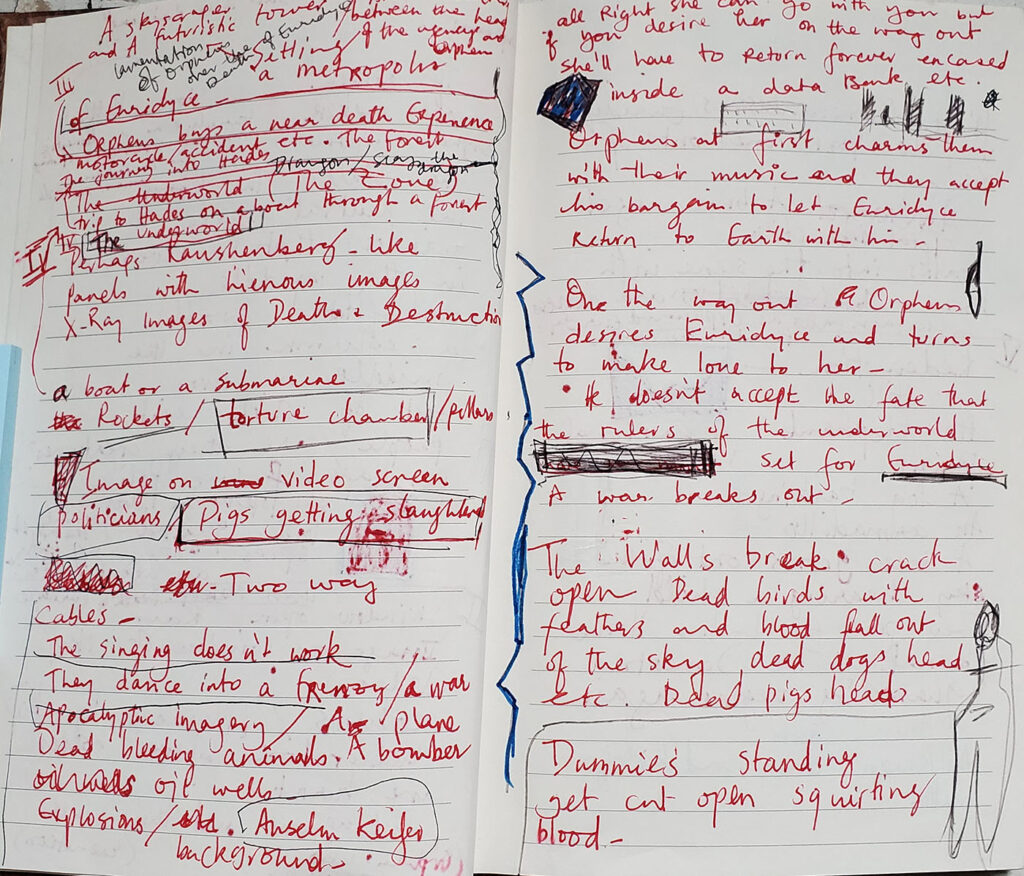 A skyscraper tower
and A futuristic
between the head
of the agency and
Orpheus
lamentation
of Orpheus
over
Death
of Euridyce
Setting
a metropolis
III
of Euridyce
Orpheus buys a near death Experience
motorcycle/accident etc. The forest
The journey into Hades
Drangon/slays the
The Underworld (The Zone)
trip to Hades on a boat through a forest
IV
The Underworld
Perhaps Raushenberg-like
panels with hienous images
X-Ray Images of Death & Destruction
a boat or a submarine
Rockets / torture chamber / pillars
Image on video screen
politicians / Pigs getting slaughtered
Two way
Cables -
The singing does n't work
They dance into a frenzy / a war
Apocalyptic imagery / A plane
Dead bleeding animals. A bomber
oil wells
Explosions / Anselm Keifer
background -
all Right she can go with you but
if you desire her on the way out
she'll have to Return forever encased
inside a data Bank etc.
Orpheus at first charms them
with their music and they accept
his bargain to let Euridyce
Return to Earth with him -
One the way out Orpheus
desires Euridyce and turns
to make love to her -
He doesn't accept the fate that
the rulers of the underworld
set for Euridyce
A war breaks out -
The Walls break crack
open Dead birds with
feathers and blood fall out
of the sky dead dogs head
etc. Dead pigs head
Dummies standing
get cut open squirting
blood -